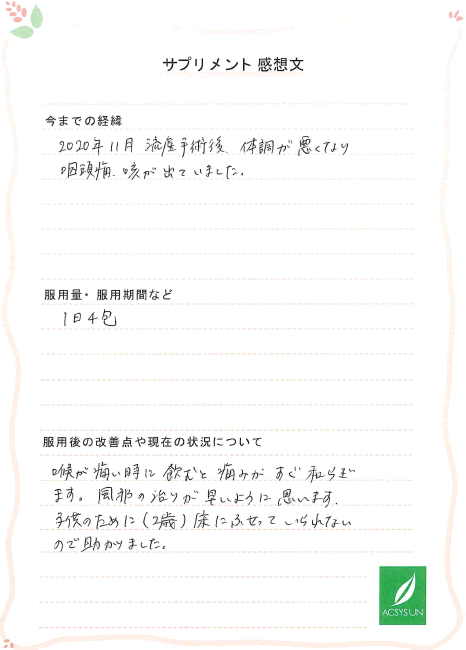 サプリメント 感想文
今までの経緯
2020年11月 流産手術後、体調が悪くなり
咽頭痛、咳が出ていました。
服用量・服用期間など
1日4包
服用後の改善点や現在の状況について
喉が痛い時に飲むと痛みがすぐ和らぎ
ます。風邪の治りが早いように思います。
子供のために(2歳)床にふせっていられない
ので助かりました。
ACSYSUN